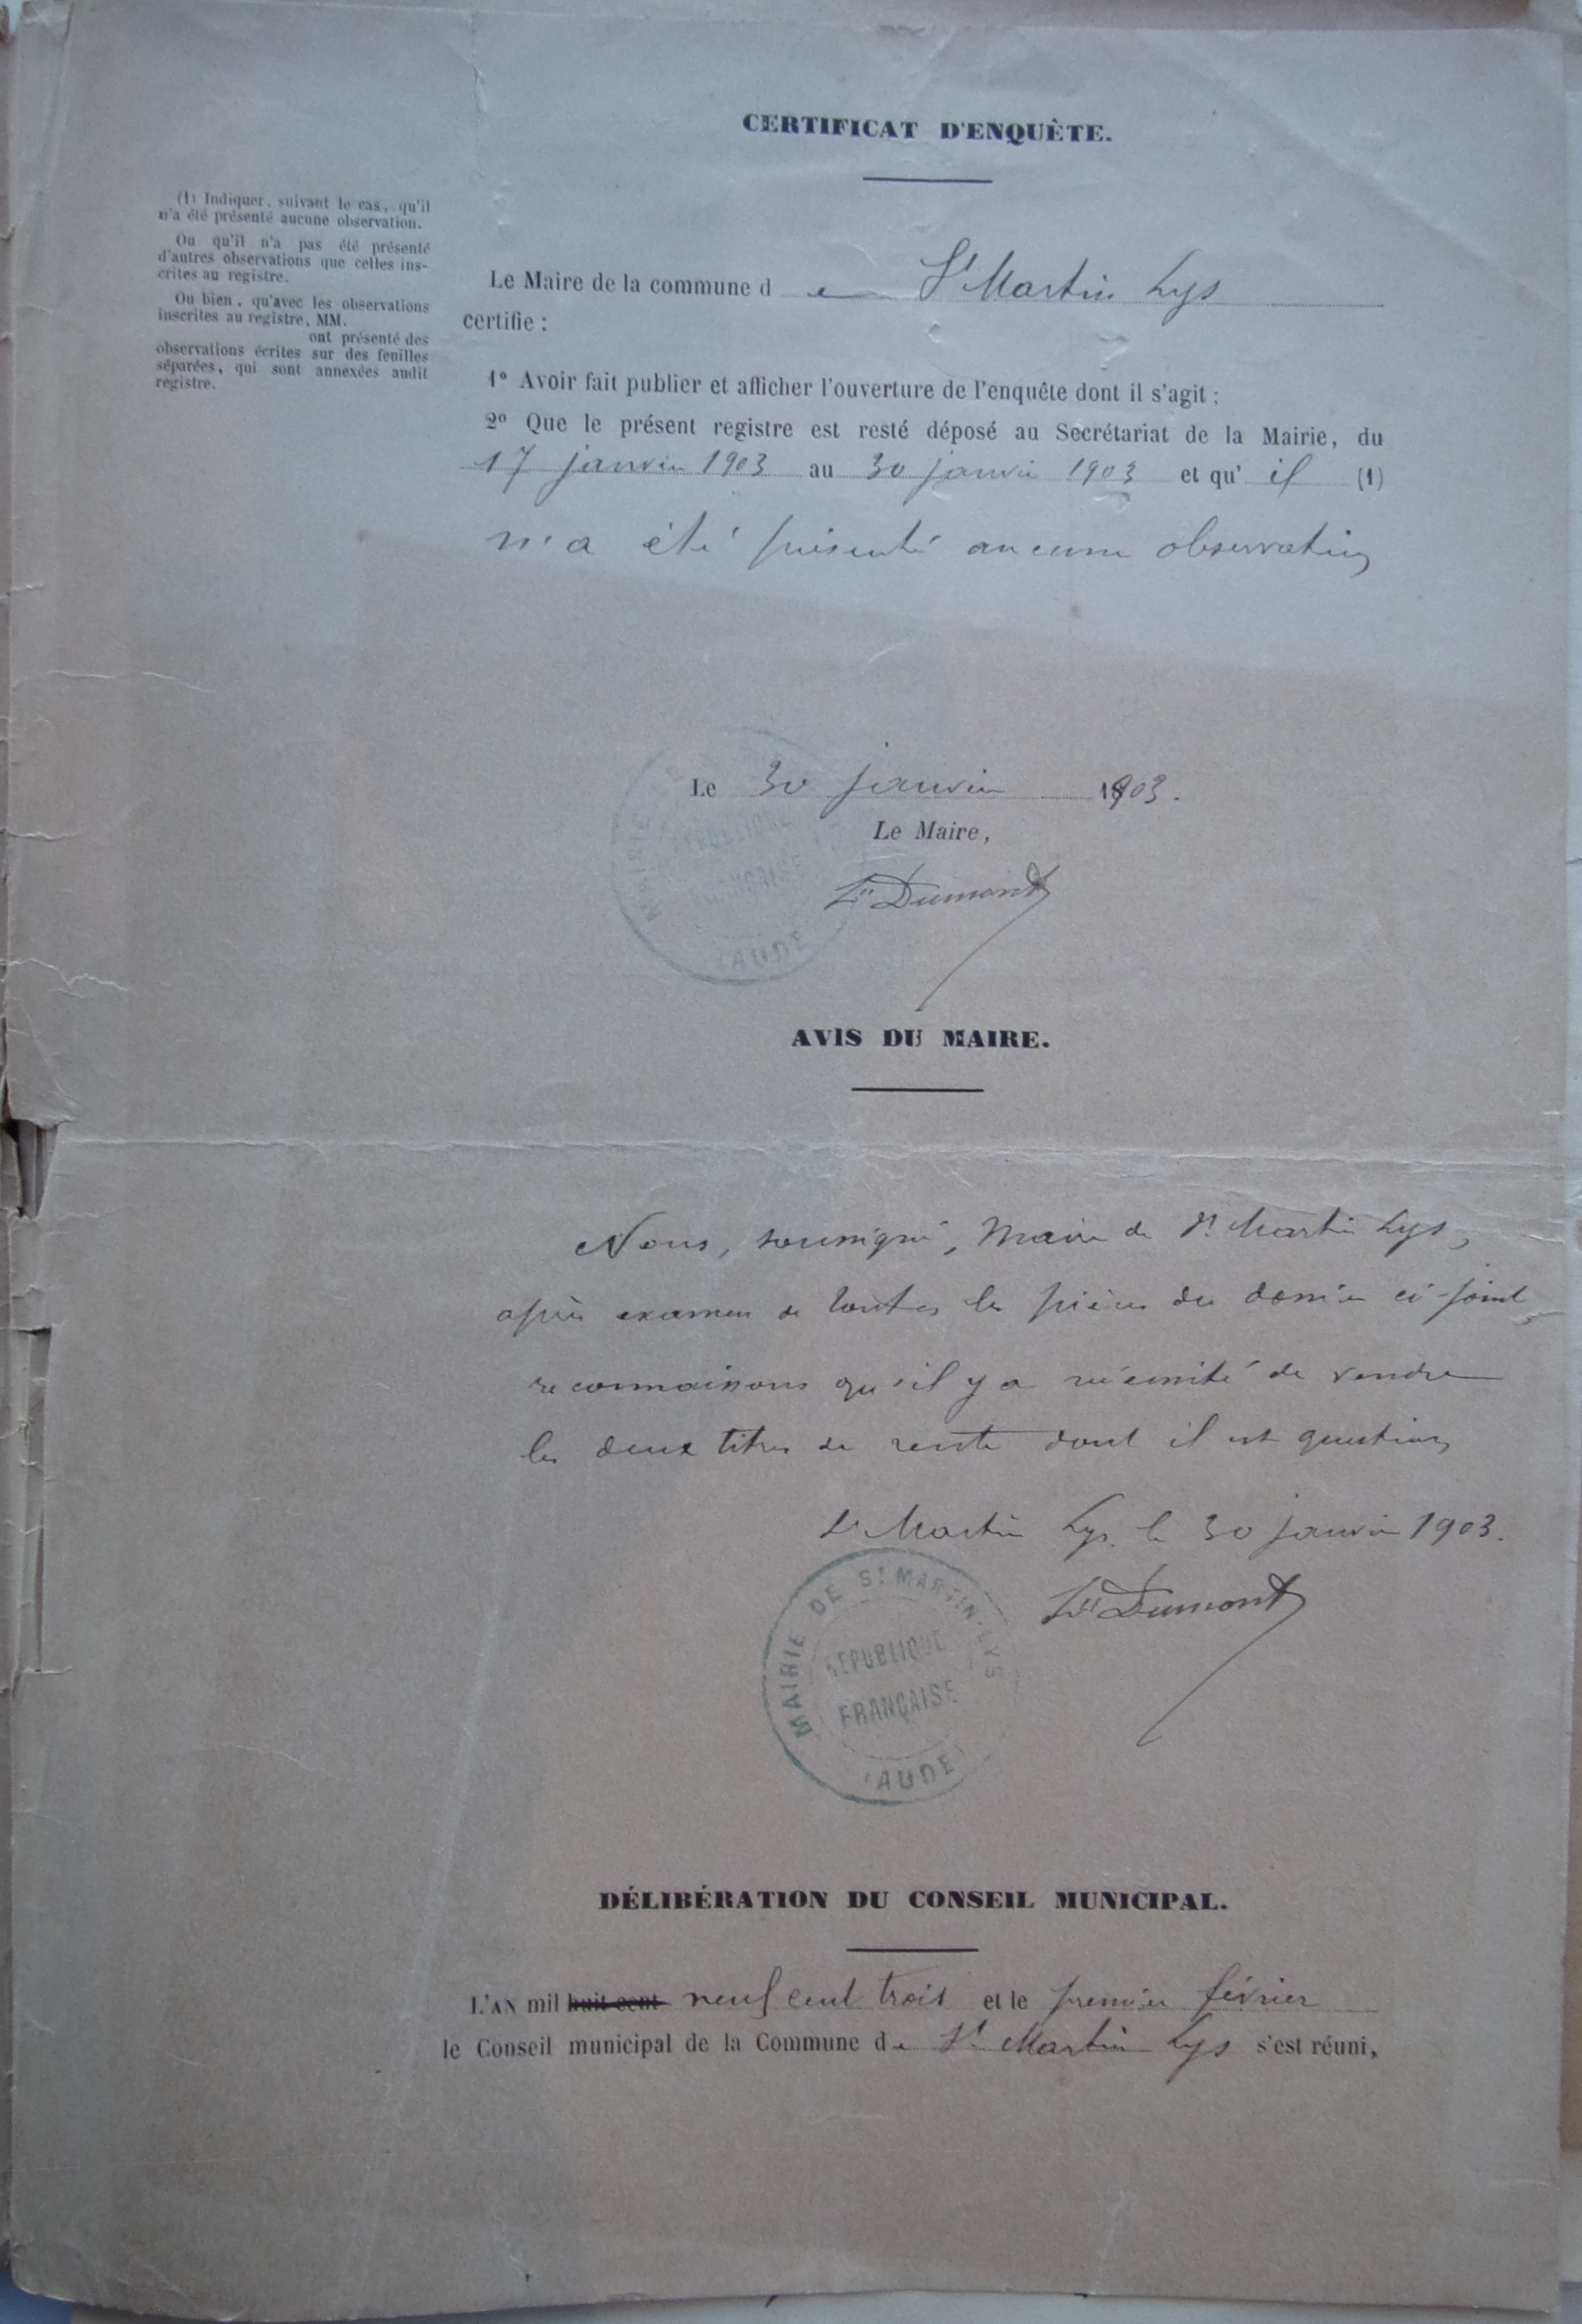 CERTIFICAT D'ENQUÈTE.
(1) Indiquer, suivant le cas, qu'il
n'a été présenté aucune observation.
Ou qu'il n'a pas été présenté
d'autres observations que celles ins-
crites au registre.
Ou bien, qu'avec les observations
inscrites au registre, MM.
ont présenté des
observations écrites sur des feuilles
séparées, qui sont annexées audit
registre.
Le Maire de la commune de St Martin Lys
certifie :
1° Avoir fait publier et afficher l'ouverture de l'enquête dont il s'agit ;
2° Que le présent registre est resté déposé au Secrétariat de la Mairie, du
17 janvier 1903 au 30 janvier 1903 et qu'il (1)
n'a été présenté aucune observation
Le 30 janvier 1903.
Le Maire,
Dumont
MAIRIE
RÉPUBLIQUE
FRANÇAISE
AUDE
AVIS DU MAIRE.
Nous, soussigné, Maire de St Martin Lys,
après examen de toutes les pièces du dossier ci-joint,
reconnaissons qu'il y a nécessité de vendre
les deux titres de rente dont il est question
St Martin Lys, le 30 janvier 1903.
Dumont
MAIRIE DE ST MARTIN-LYS
RÉPUBLIQUE
FRANÇAISE
AUDE
DÉLIBÉRATION DU CONSEIL MUNICIPAL.
L'AN mil huit cent neuf cent trois et le premier février
le Conseil municipal de la Commune de St Martin Lys s'est réuni,